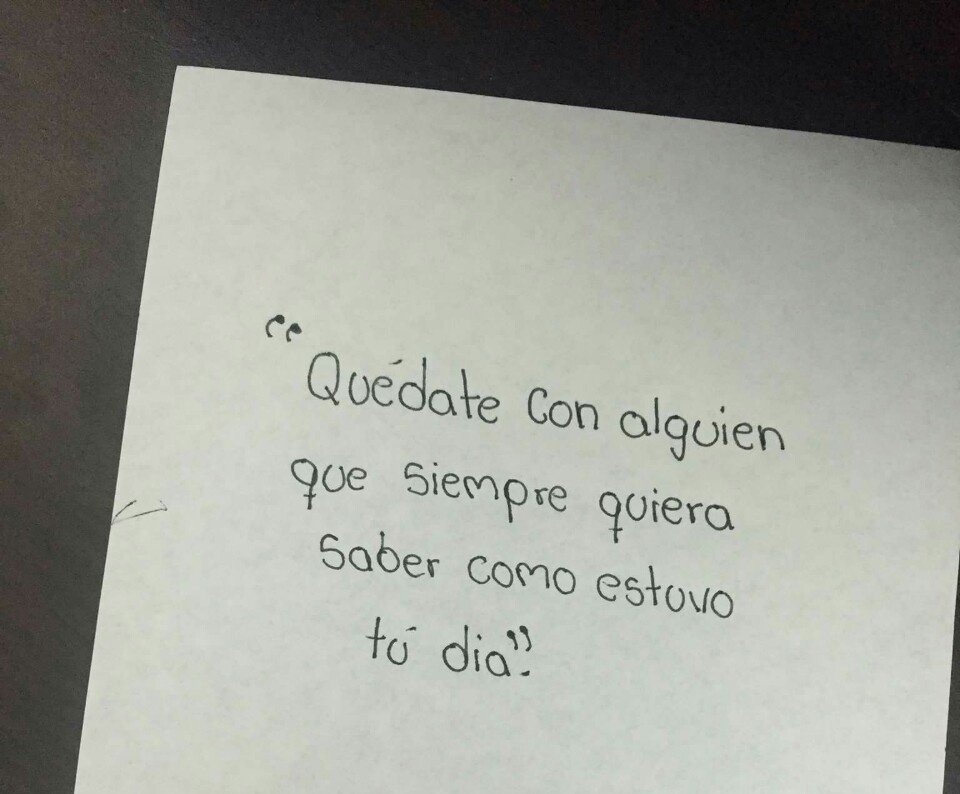 “Quédate con alguien
que siempre quiera
saber como estuvo
tú dia”.